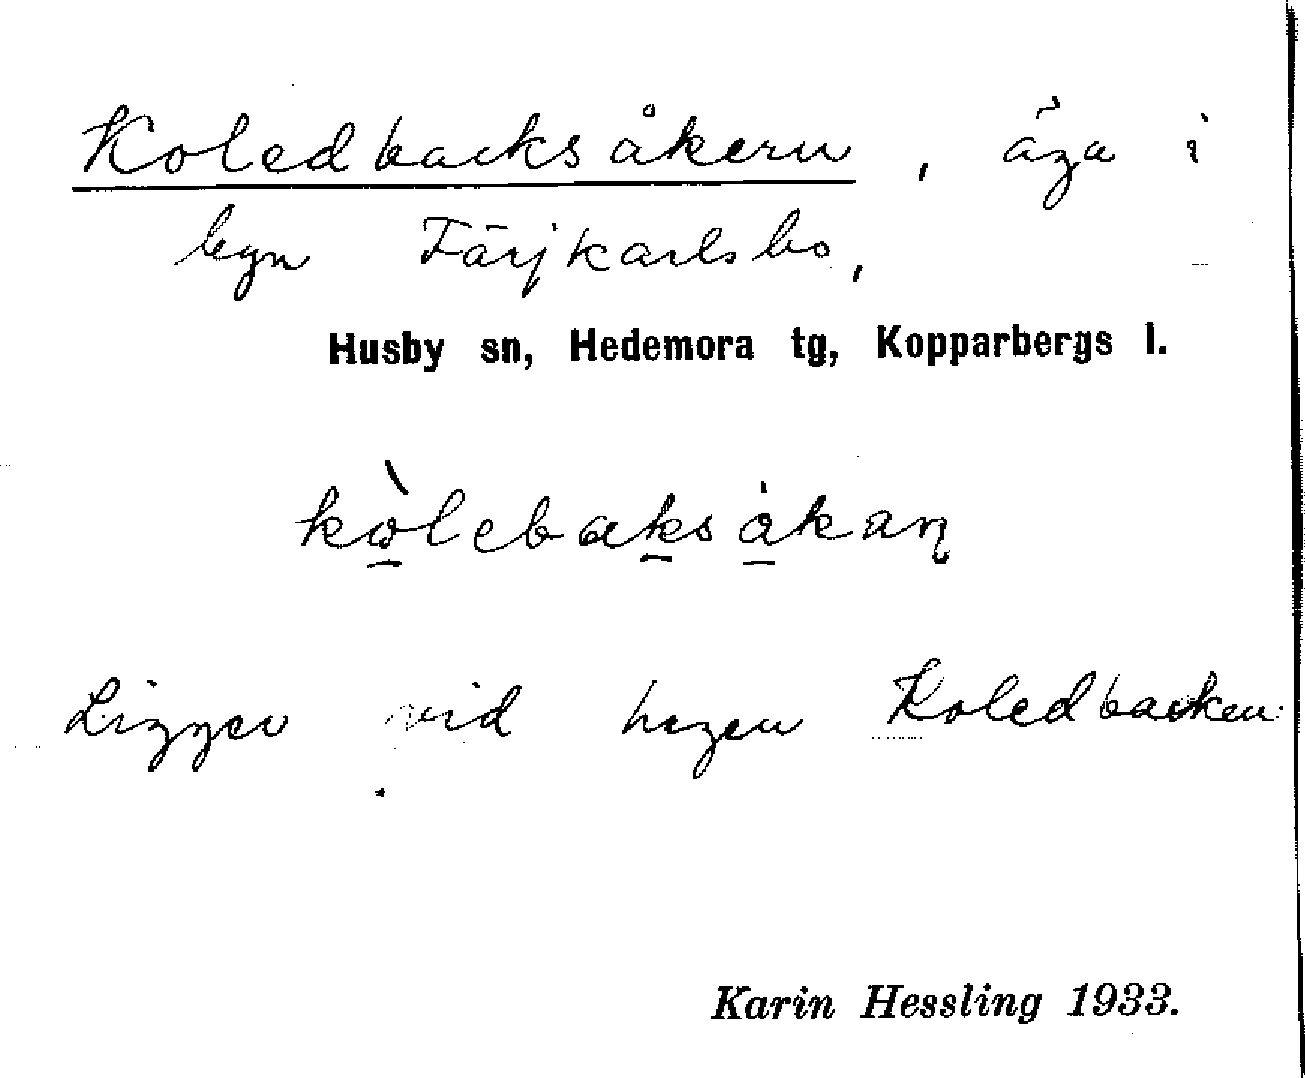 Koledbacksåkern, äga i
byn Färjkarlsbo,
Husby sn, Hedemora tg, Kopparbergs l.
kòlebaksåkaɳ
Ligger vid hagen Koledbacken.
Karin Hessling 1933.